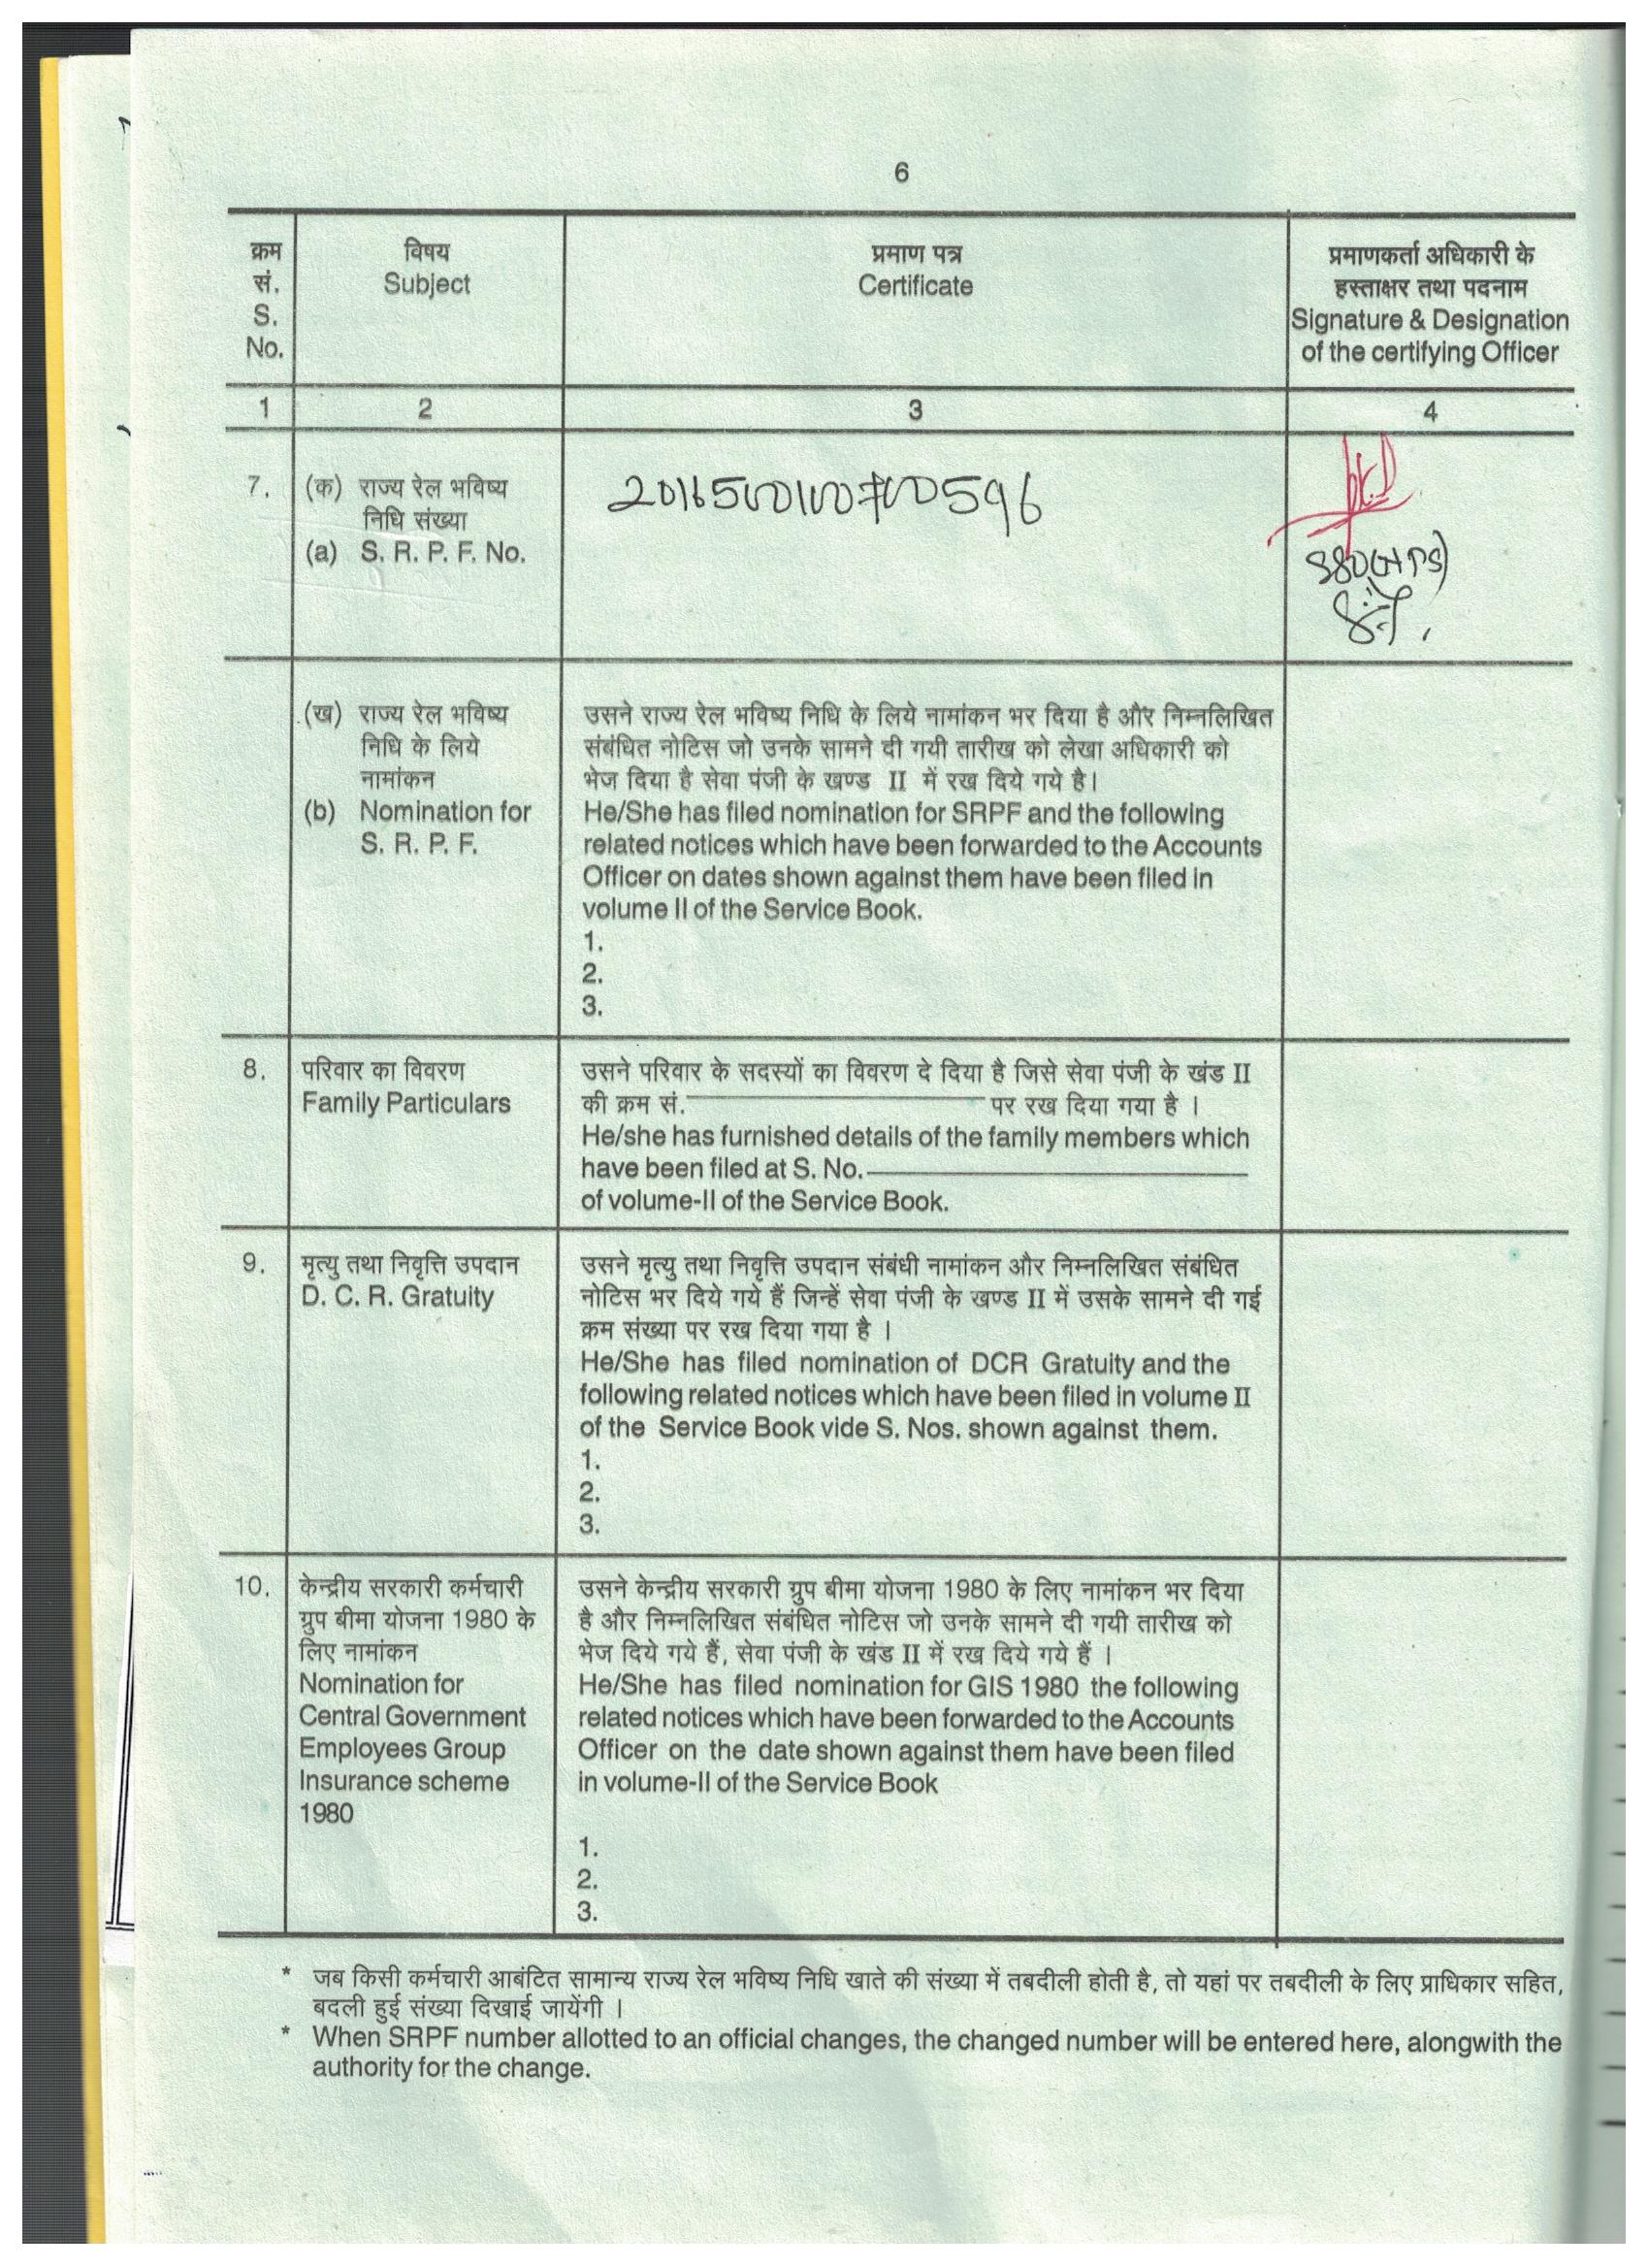 6
क्रम सं. S. No.
विषय Subject
प्रमाण पत्र Certificate
प्रमाणकर्ता अधिकारी के
हस्ताक्षर तथा पदनाम
Signature & Designation
of the certifying Officer
1 2 3 4
7. (क) राज्य रेल भविष्य
निधि संख्या
(a) S. R. P. F. No.
(ख) राज्य रेल भविष्य
निधि के लिये
नामांकन
(b) Nomination for
S. R. P. F.
उसने राज्य रेल भविष्य निधि के लिये नामांकन भर दिया है और निम्नलिखित
संबंधित नोटिस जो उनके सामने दी गयी तारीख को लेखा अधिकारी को
भेज दिया है सेवा पंजी के खण्ड II में रख दिये गये है।
He/She has filed nomination for SRPF and the following
related notices which have been forwarded to the Accounts
Officer on dates shown against them have been filed in
volume II of the Service Book.
1.
2.
3.
8. परिवार का विवरण
Family Particulars
उसने परिवार के सदस्यों का विवरण दे दिया है जिसे सेवा पंजी के खंड II
की क्रम सं. पर रख दिया गया है ।
He/she has furnished details of the family members which
have been filed at S. No.
of volume-II of the Service Book.
9. मृत्यु तथा निवृत्ति उपदान
D. C. R. Gratuity
उसने मृत्यु तथा निवृत्ति उपदान संबंधी नामांकन और निम्नलिखित संबंधित
नोटिस भर दिये गये हैं जिन्हें सेवा पंजी के खण्ड II में उसके सामने दी गई
क्रम संख्या पर रख दिया गया है ।
He/She has filed nomination of DCR Gratuity and the
following related notices which have been filed in volume II
of the Service Book vide S. Nos. shown against them.
1.
2.
3.
10. केन्द्रीय सरकारी कर्मचारी
ग्रुप बीमा योजना 1980 के
लिए नामांकन
Nomination for
Central Government
Employees Group
Insurance scheme
1980
उसने केन्द्रीय सरकारी ग्रुप बीमा योजना 1980 के लिए नामांकन भर दिया
है और निम्नलिखित संबंधित नोटिस जो उनके सामने दी गयी तारीख को
भेज दिये गये हैं, सेवा पंजी के खंड II में रख दिये गये हैं ।
He/She has filed nomination for GIS 1980 the following
related notices which have been forwarded to the Accounts
Officer on the date shown against them have been filed
in volume-II of the Service Book
1.
2.
3.
* जब किसी कर्मचारी आबंटित सामान्य राज्य रेल भविष्य निधि खाते की संख्या में तबदीली होती है, तो यहां पर तबदीली के लिए प्राधिकार सहित,
बदली हुई संख्या दिखाई जायेंगी ।
* When SRPF number allotted to an official changes, the changed number will be entered here, alongwith the
authority for the change.